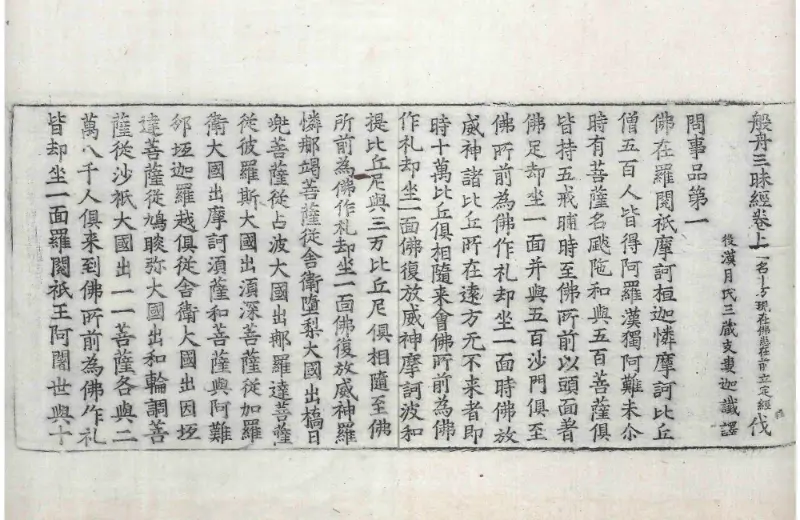 般舟三昧經卷上 一名十方現在佛悉在前立定經 伐
後漢月氏三藏支婁迦讖譯
問事品第一
佛在羅閱祇摩訶桓迦憐摩訶比丘
僧五百人皆得阿羅漢獨阿難未尒
時有菩薩名颰陁和與五百菩薩俱
皆持五戒晡時至佛所前以頭面著
佛足却坐一面并與五百沙門俱至
佛所前為佛作礼却坐一面時佛放
威神諸比丘所在遠方无不来者即
時十萬比丘俱相隨来會佛所前為佛
作礼却坐一面佛復放威神摩訶波和
提比丘尼與三万比丘尼俱相隨至佛
所前為佛作礼却坐一面佛復放威神羅
憐那竭菩薩從舍衛墮梨大國出橋日
兜菩薩從占波大國出那羅達菩薩
從彼羅斯大國出湏深菩薩從加羅
衛大國出摩訶湏薩和菩薩與阿難
邠坻迦羅越俱從舍衛大國出因坻
達菩薩從鳩睒弥大國出和輪調菩
薩從沙祇大國出一一菩薩各與二
萬八千人俱來到佛所前為佛作礼
皆却坐一面羅閱祇王阿闍世與十